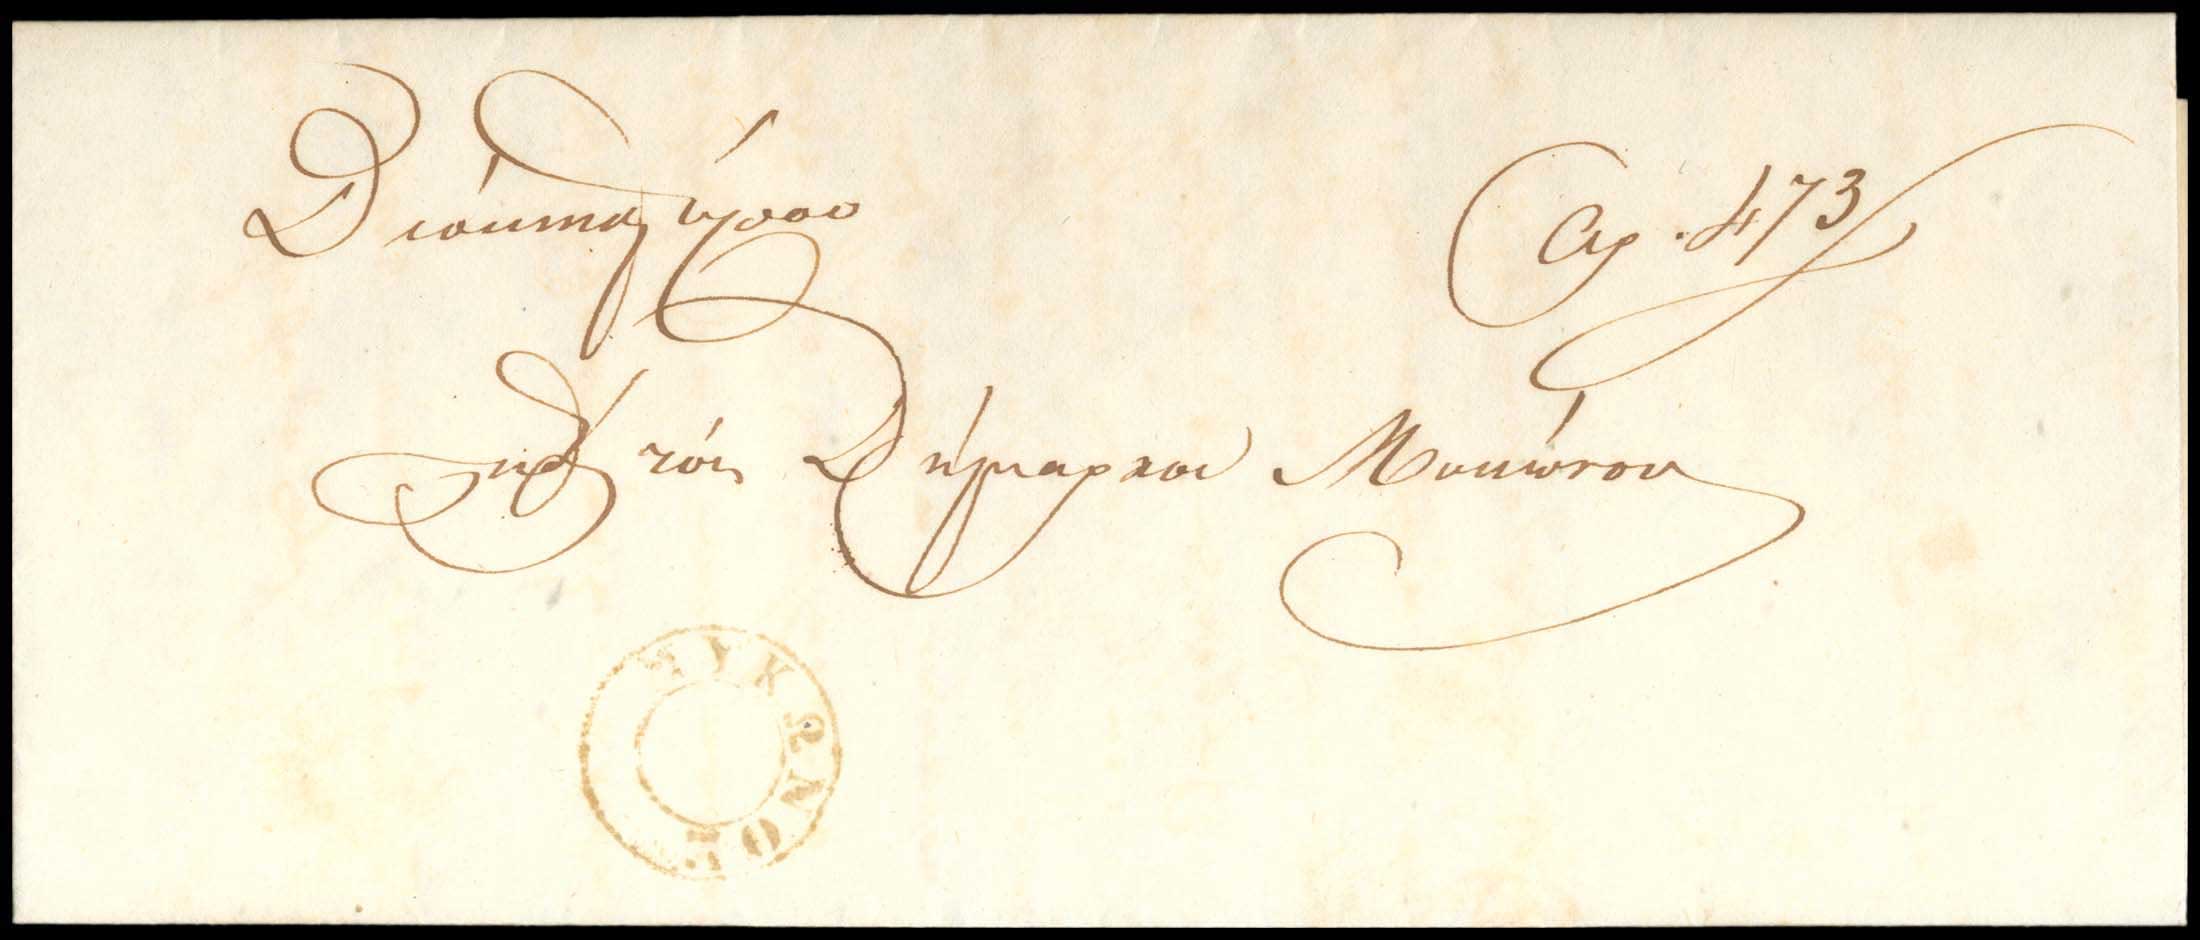 Διοίκησις Σύρου
Αρ. 473
Πρὸς τὸν Δήμαρχον Μυκώνου
ΜΥΚΩΝΟΣ.